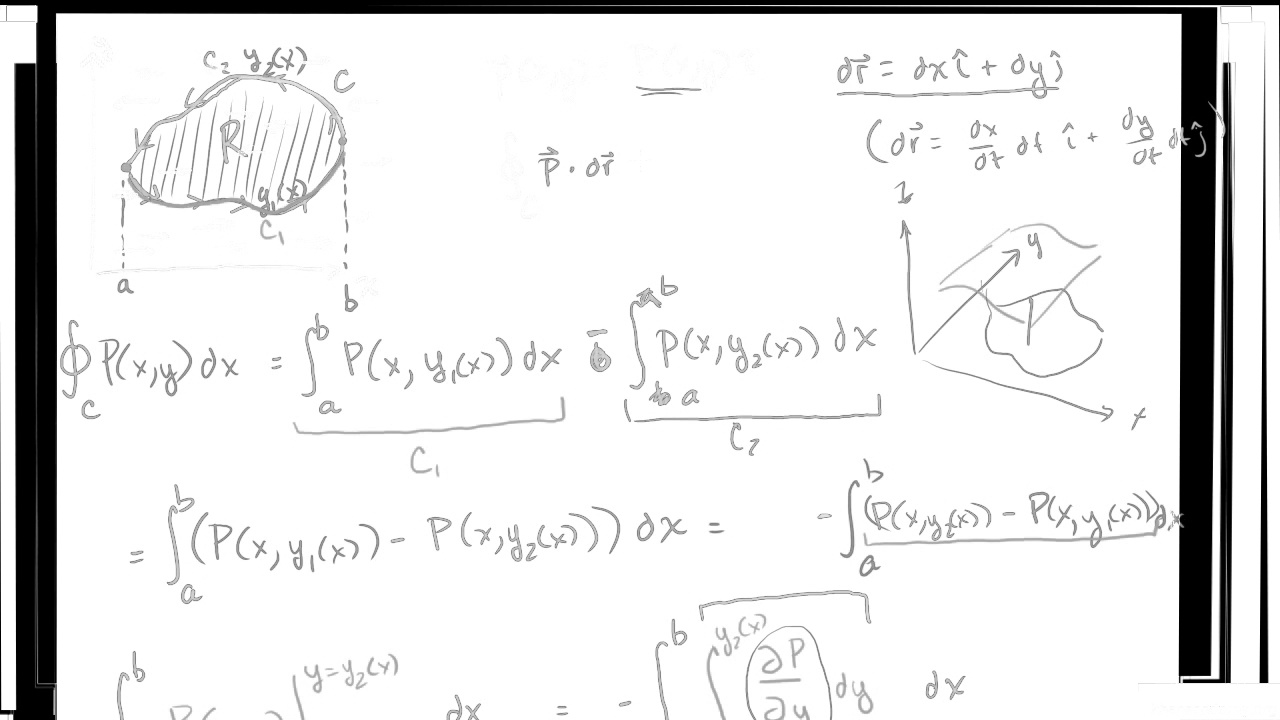 C₂ y₂(x)
C
R
y₁(x)
C₁
a
b
P⃗ · dr⃗
dr⃗ = dx î + dy ĵ
(dr⃗ = dx/dt dt î + dy/dt dt ĵ)
y
x
∮_C P(x,y) dx = ∫_a^b P(x, y₁(x)) dx − ∫_a^b P(x, y₂(x)) dx
C₁
C₂
= ∫_a^b (P(x, y₁(x)) − P(x, y₂(x))) dx = − ∫_a^b (P(x, y₂(x)) − P(x, y₁(x))) dx
y = y₂(x)
dx = − ∫^b ∫^{y₂(x)} ∂P/∂y dy dx